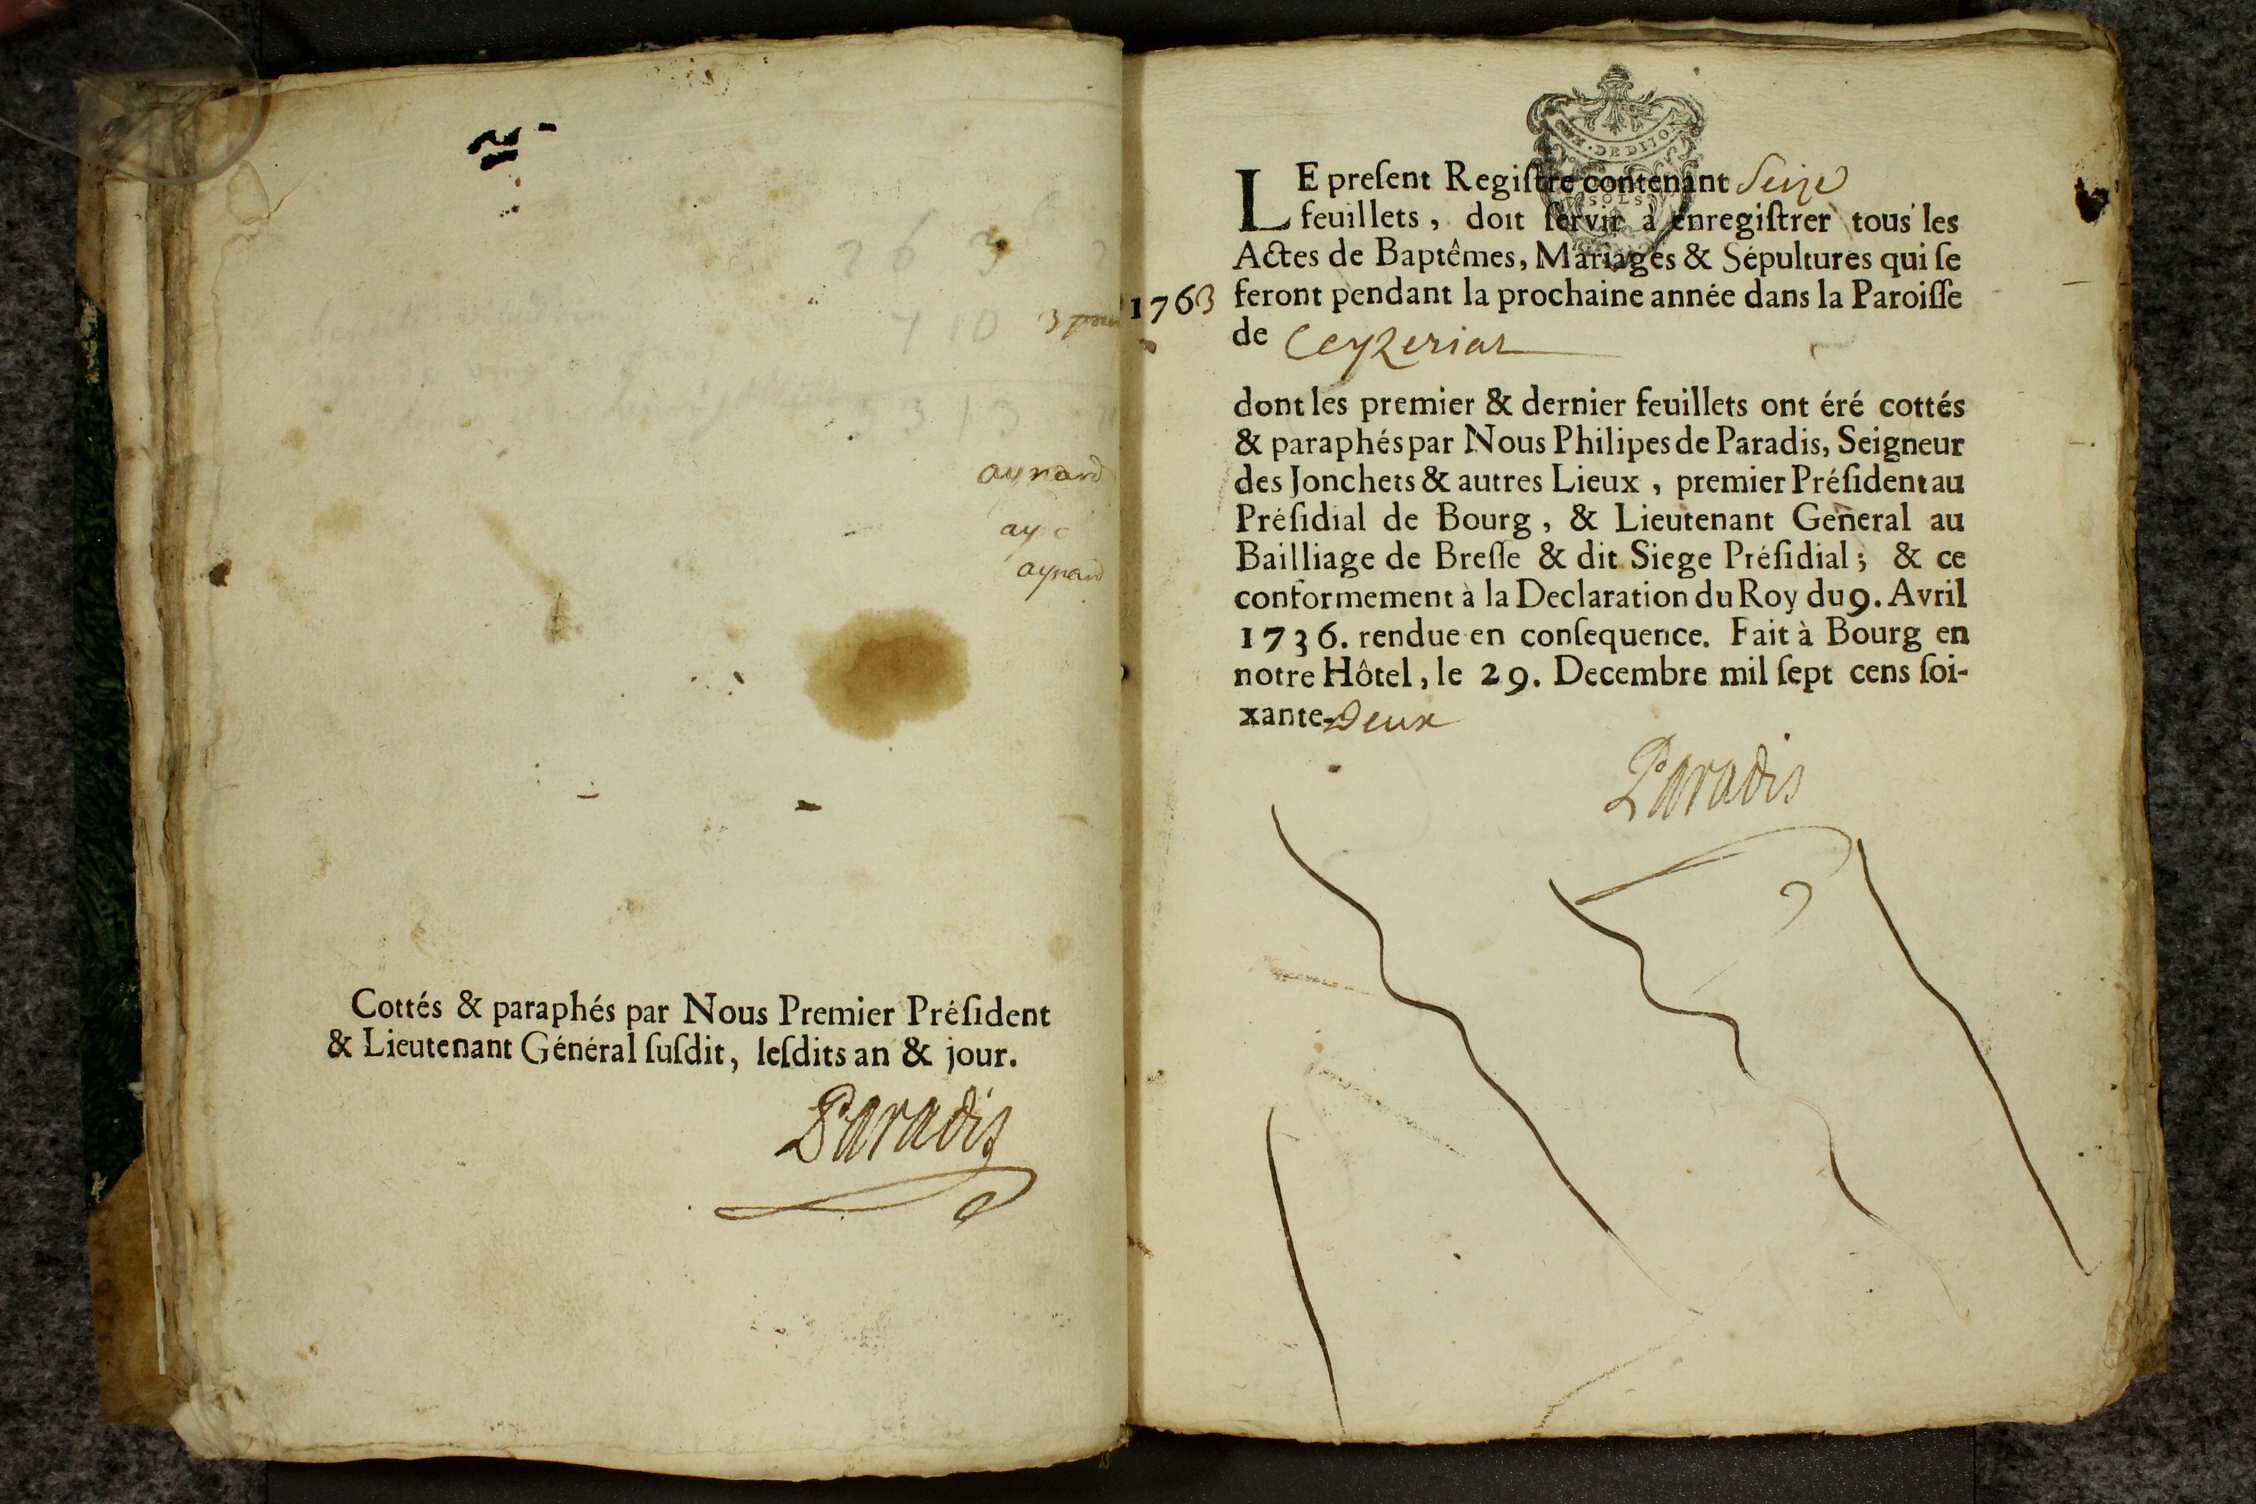 aynard
aynard
Cottés & paraphés par Nous Premier Préſident
& Lieutenant Général ſuſdit, leſdits an & jour.
Paradis
DE DIJON
SOLS
LE preſent Regiſtre contenant Seize
feuillets, doit ſervir à enregiſtrer tous les
Actes de Baptêmes, Mariages & Sépultures qui ſe
1763 feront pendant la prochaine année dans la Paroiſſe
de Ceyzeriat
dont les premier & dernier feuillets ont éré cottés
& paraphés par Nous Philipes de Paradis, Seigneur
des Jonchets & autres Lieux, premier Préſident au
Préſidial de Bourg, & Lieutenant General au
Bailliage de Breſſe & dit Siege Préſidial; & ce
conformement à la Declaration du Roy du 9. Avril
1736. rendue en conſequence. Fait à Bourg en
notre Hôtel, le 29. Decembre mil ſept cens ſoi-
xante-Deux
Paradis